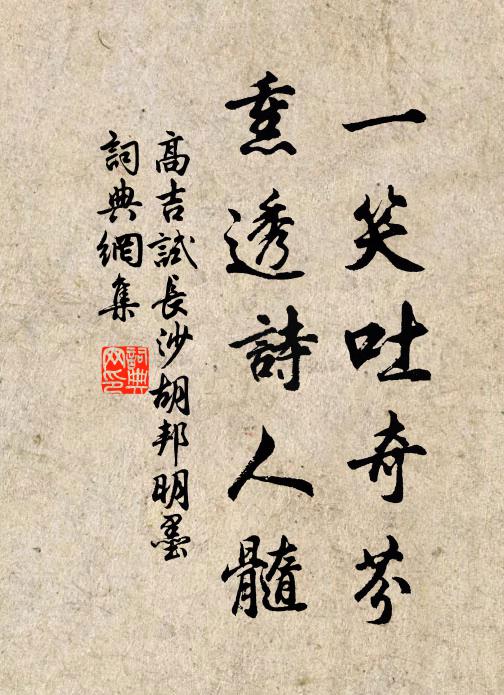 一笑吐奇芬
熏透詩人髓
高吉試長沙胡邦明墨
詞典網集
詞典网印